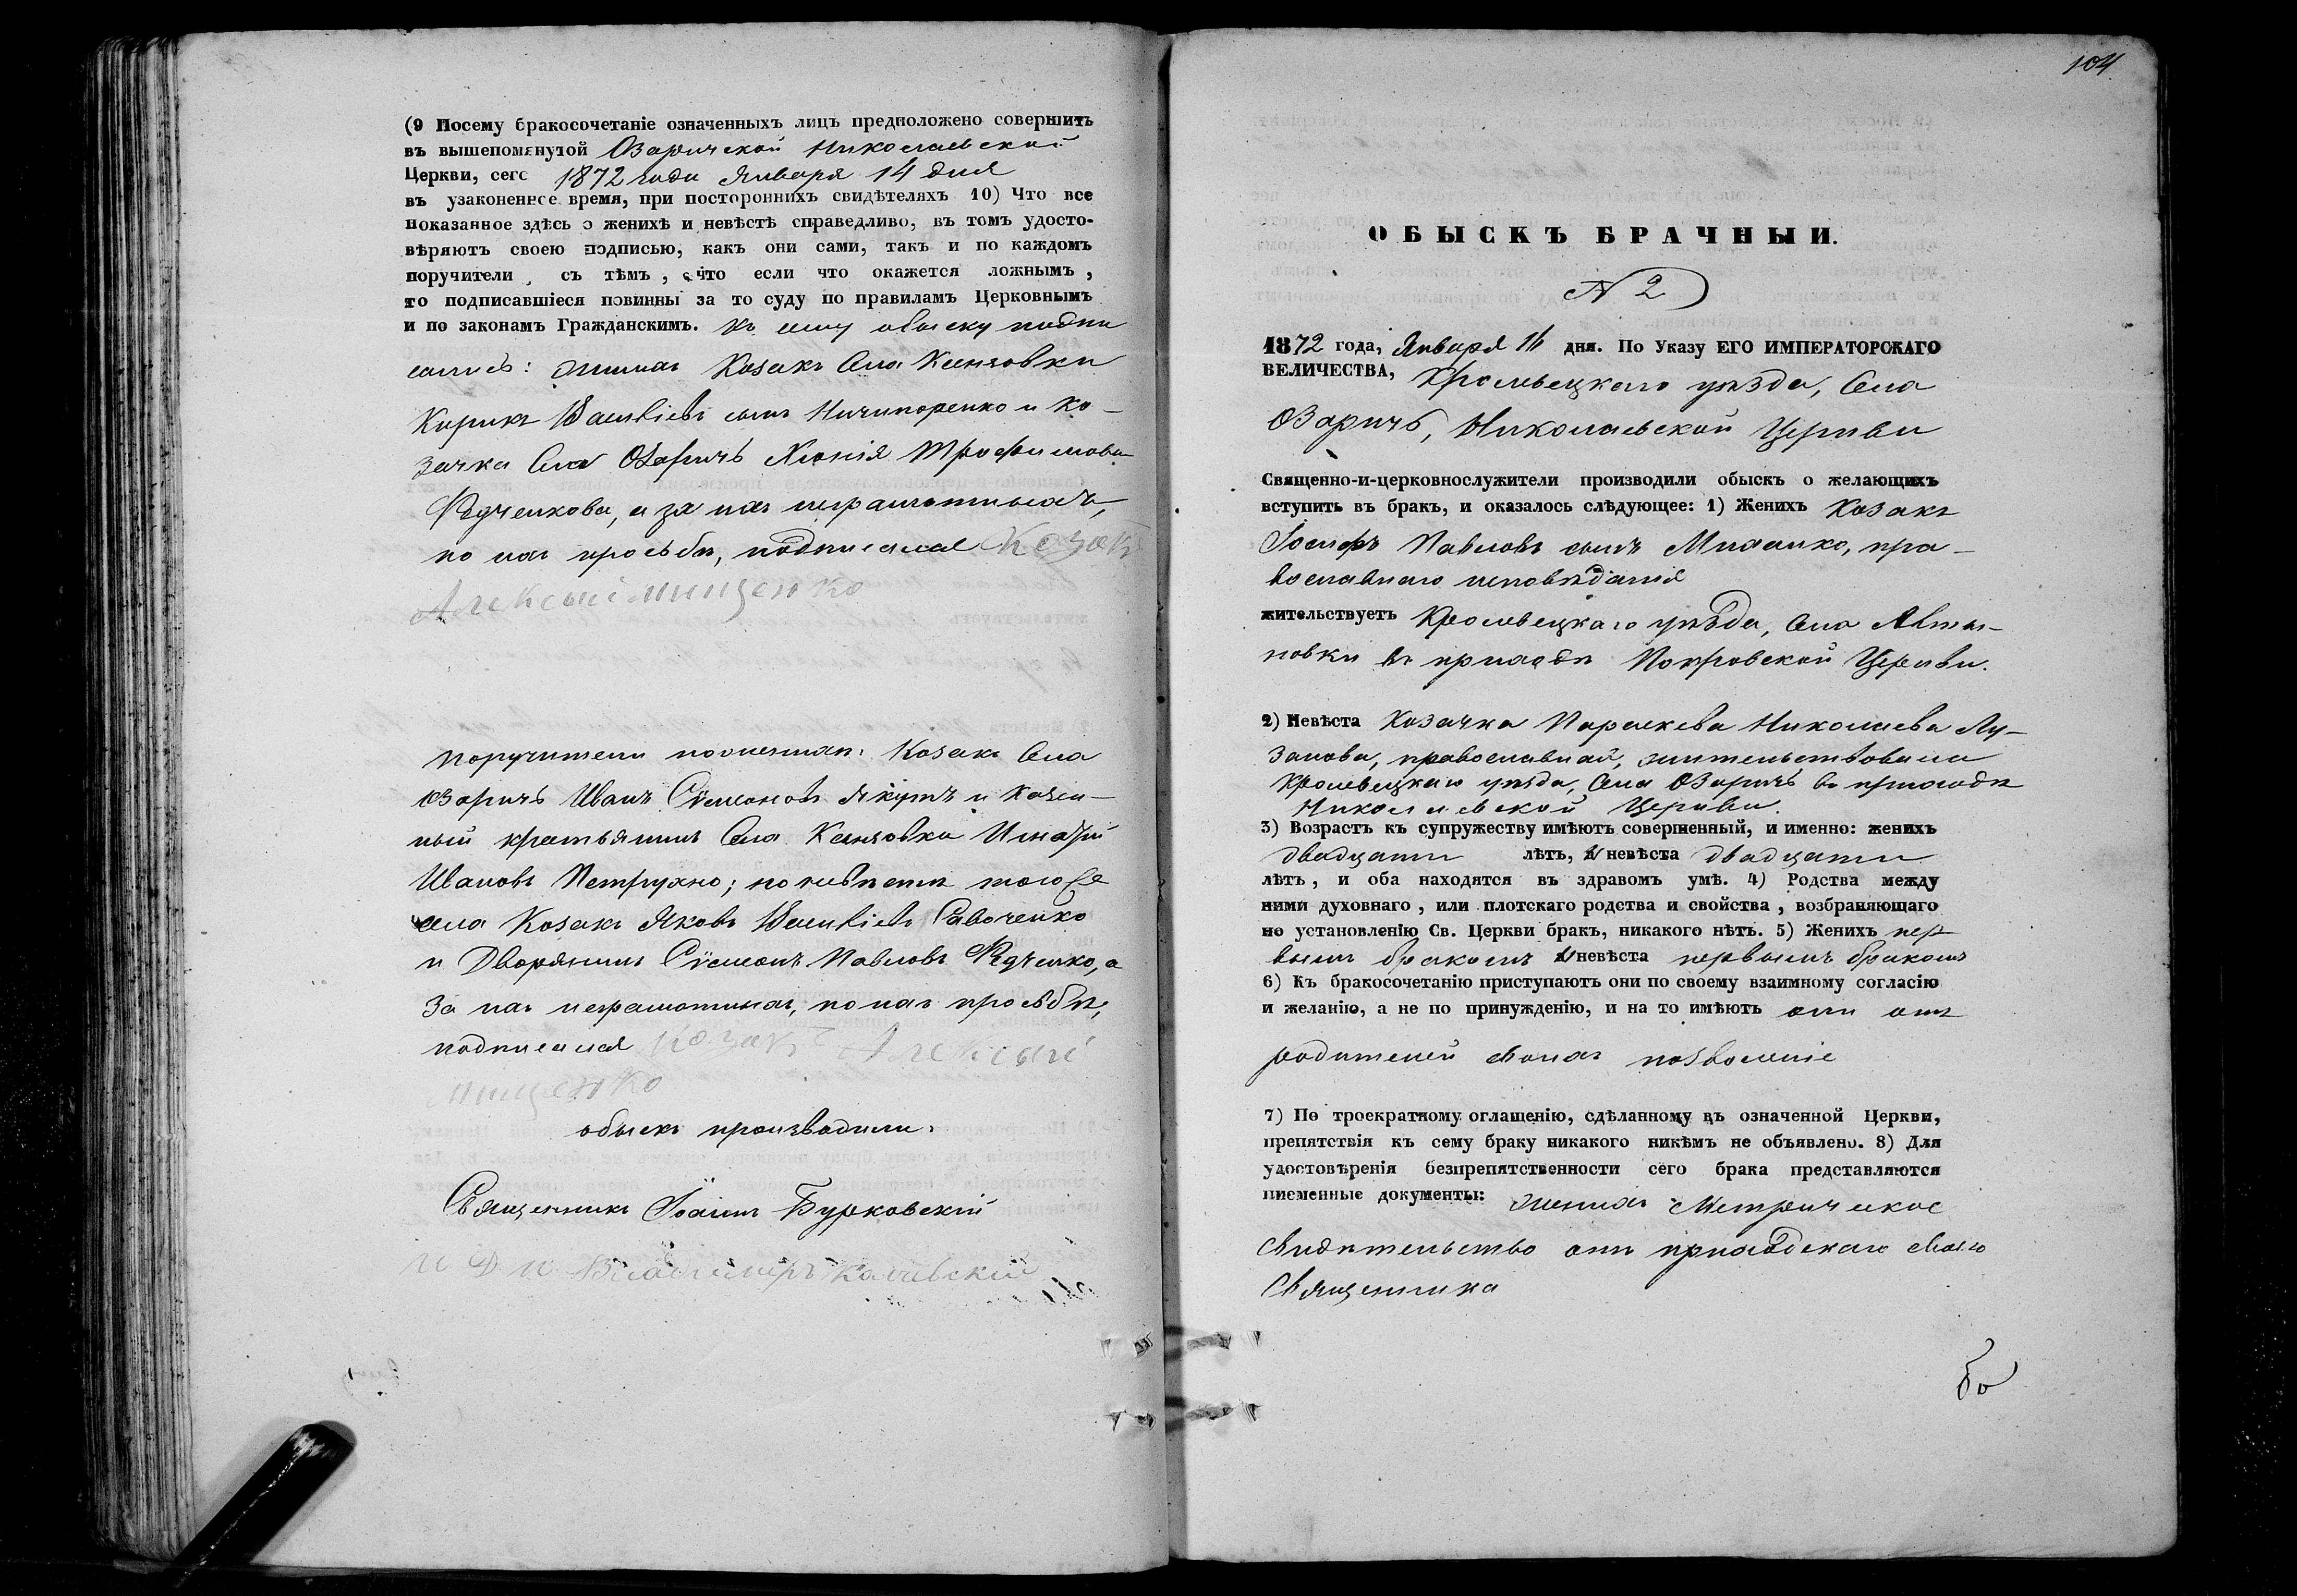 (9 Посему бракосочетаніе означенныхъ лицъ предположено совершить
въ вышепомянутой Озаричской Николаевской
Церкви, сего 1872 года Января 14 дня
въ узаконенное время, при постороннихъ свидѣтеляхъ 10) Что все
показанное здѣсь о женихѣ и невѣстѣ справедливо, въ томъ удосто-
вѣряютъ своею подписью, какъ они сами, такъ и по каждомъ
поручители, съ тѣмъ, что если что окажется ложнымъ,
то подписавшіеся повинны за то суду по правиламъ Церковнымъ
и по законамъ Гражданскимъ. Къ сему обыску подпи
сались: женихъ Козакъ Села
Кирикъ Васильевъ сынъ Ничипоренко и Ко-
зачка Села Озаричъ Ксенія Трофимова
Федченкова, а за нихъ неграмотныхъ,
по ихъ просьбѣ, подписался Козакъ
Алексый Мищенко
Поручители по женихѣ: Козакъ Села
Озаричъ Иванъ Сѵмеоновъ Якутъ и Казен-
ный крестьянинъ Села Игнатій
Ивановъ Петрухно; по невѣстѣ того же
села Козакъ Яковъ Васильевъ Савченко
и Дворянинъ Сѵмеонъ Павловъ Федченко, а
за нихъ неграмотныхъ, по ихъ просьбѣ,
подписался козакъ Алексый
Мищенко
обыскъ производили:
Священникъ Іоаннъ Бурковскій
И Д П Владимиръ
104
ОБЫСКЪ БРАЧНЫЙ.
N 2
1872 года, Января 16 дня. По Указу ЕГО ИМПЕРАТОРСКАГО
ВЕЛИЧЕСТВА, Кролевецкаго уѣзда, Села
Озаричъ, Николаевской Церкви
Священно-и-церковнослужители производили обыскъ о желающихъ
вступить въ бракъ, и оказалось слѣдующее: 1) Женихъ Козакъ
Іосифъ Павловъ сынъ Миланко, пра-
вославнаго исповѣданія
жительствуетъ Кролевецкаго уѣзда, Села Алты-
новки въ приходѣ Покровской Церкви.
2) Невѣста Козачка Параскева Николаева Лу-
занова, православная, жительствовала
Кролевецкаго уѣзда, Села Озаричъ въ приходѣ
Николаевской Церкви.
3) Возрастъ къ супружеству имѣютъ совершенный, и именно: женихъ
двадцати лѣтъ, а невѣста двадцати
лѣтъ, и оба находятся въ здравомъ умѣ. 4) Родства между
ними духовнаго, или плотскаго родства и свойства, возбраняющаго
по установленію Св. Церкви бракъ, никакого нѣтъ. 5) Женихъ пер
вымъ бракомъ а невѣста первымъ бракомъ
6) Къ бракосочетанію приступаютъ они по своему взаимному согласію
и желанію, а не по принужденію, и на то имѣютъ они отъ
родителей своихъ позволеніе
7) По троекратному оглашенію, сдѣланному въ означенной Церкви,
препятствія къ сему браку никакого никѣмъ не объявлено. 8) Для
удостовѣренія безпрепятственности сего брака представляются
писменные документы: жениха Метрическое
свидѣтельство отъ приходскаго своего
Священника